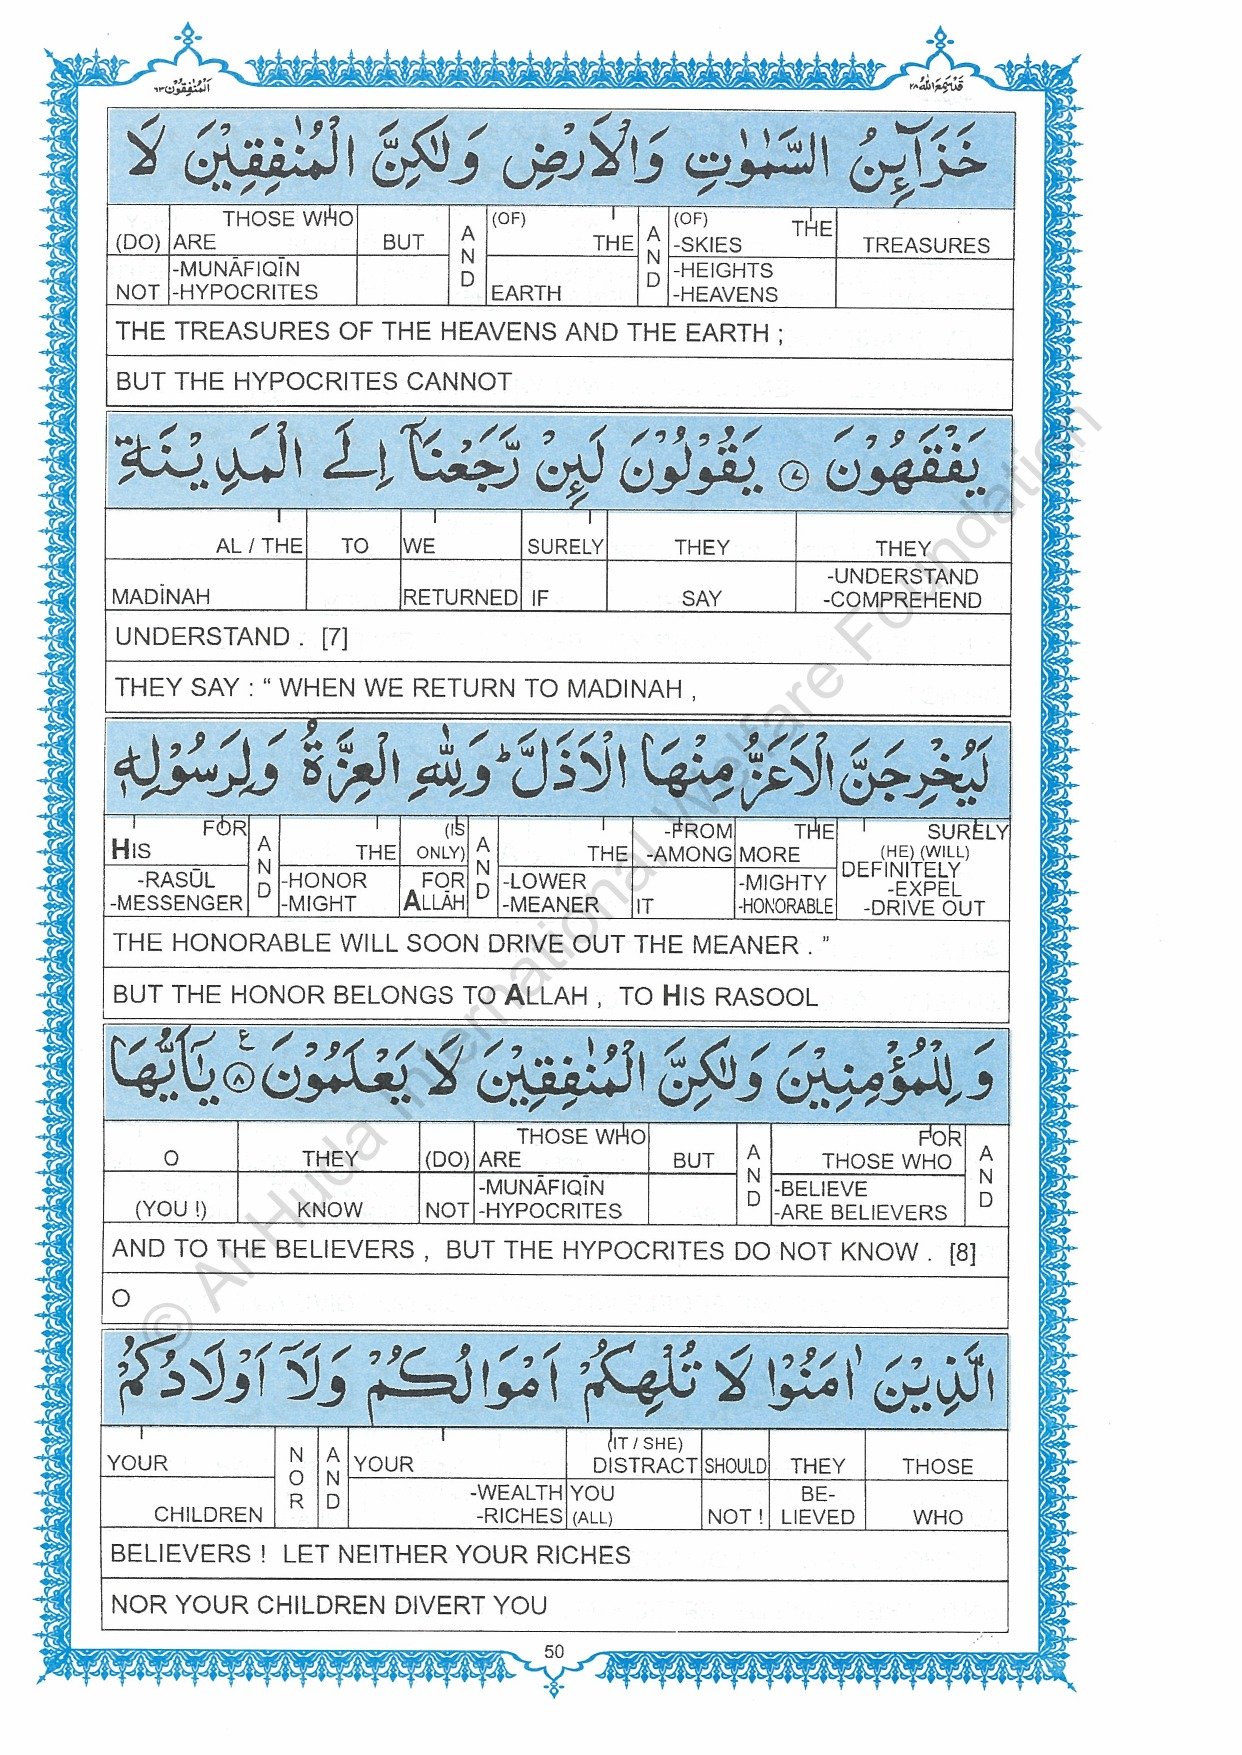 اَلْمُنٰفِقُوْن ٦٣
قَدْ سَمِعَ اللّٰهُ ٢٨
خَزَآئِنُ السَّمٰوٰتِ وَالْاَرْضِ وَلٰكِنَّ الْمُنٰفِقِيْنَ لَا
(DO) THOSE WHO ARE BUT AND (OF) THE AND (OF) THE -SKIES TREASURES
NOT -MUNĀFIQĪN -HYPOCRITES EARTH -HEIGHTS -HEAVENS
THE TREASURES OF THE HEAVENS AND THE EARTH ;
BUT THE HYPOCRITES CANNOT
يَفْقَهُوْنَ ٧ يَقُوْلُوْنَ لَئِنْ رَّجَعْنَآ اِلَى الْمَدِيْنَةِ
AL / THE TO WE SURELY THEY THEY
MADĪNAH RETURNED IF SAY -UNDERSTAND -COMPREHEND
UNDERSTAND . [7]
THEY SAY : “ WHEN WE RETURN TO MADINAH ,
لَيُخْرِجَنَّ الْاَعَزُّ مِنْهَا الْاَذَلَّ ؕ وَلِلّٰهِ الْعِزَّةُ وَلِرَسُوْلِهٖ
FOR HIS AND THE (IS ONLY) AND THE -FROM -AMONG THE MORE SURELY (HE) (WILL) DEFINITELY
-RASŪL -MESSENGER -HONOR -MIGHT FOR ALLĀH -LOWER -MEANER IT -MIGHTY -HONORABLE -EXPEL -DRIVE OUT
THE HONORABLE WILL SOON DRIVE OUT THE MEANER . ”
BUT THE HONOR BELONGS TO ALLAH , TO HIS RASOOL
وَلِلْمُؤْمِنِيْنَ وَلٰكِنَّ الْمُنٰفِقِيْنَ لَا يَعْلَمُوْنَ ٨ ع يٰٓاَيُّهَا
O THEY (DO) THOSE WHO ARE BUT AND FOR THOSE WHO AND
(YOU !) KNOW NOT -MUNĀFIQĪN -HYPOCRITES -BELIEVE -ARE BELIEVERS
AND TO THE BELIEVERS , BUT THE HYPOCRITES DO NOT KNOW . [8]
O
الَّذِيْنَ اٰمَنُوْا لَا تُلْهِكُمْ اَمْوَالُكُمْ وَلَآ اَوْلَادُكُمْ
YOUR NOR AND YOUR (IT / SHE) DISTRACT SHOULD THEY THOSE
CHILDREN -WEALTH -RICHES YOU (ALL) NOT ! BE- LIEVED WHO
BELIEVERS ! LET NEITHER YOUR RICHES
NOR YOUR CHILDREN DIVERT YOU
50
© Al-Huda International Welfare Foundation